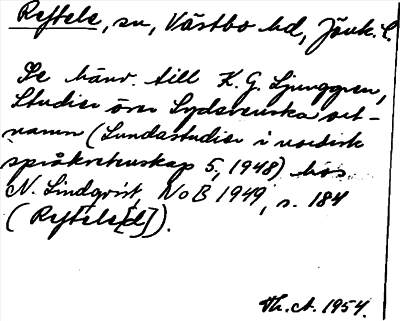 Reftele, sn, Västbo hd, Jönk. l.
Se hänv. till K. G. Ljunggren,
Studier över Sydsvenska ort-
namn (Lundastudier i nordisk
språkvetenskap 5, 1948) hos
N. Lindqvist, NoB 1949, s. 184
(Reftele[d]).
Th. A. 1954.